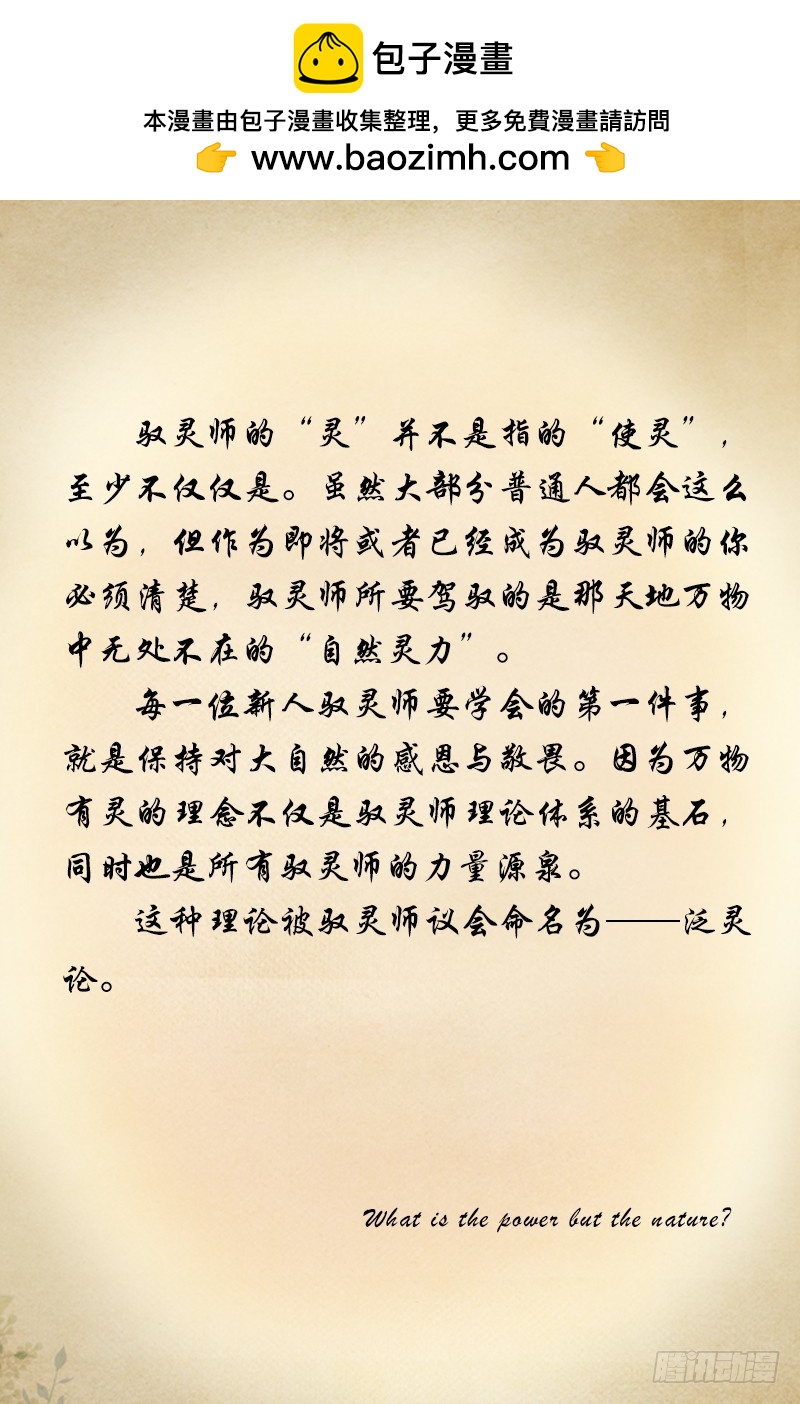 包子漫畫
本漫畫由包子漫畫收集整理，更多免費漫畫請訪問
👉 www.baozimh.com 👈
驭灵师的“灵”并不是指的“使灵”，
至少不仅仅是。虽然大部分普通人都会这么
以为，但作为即将或者已经成为驭灵师的你
必须清楚，驭灵师所要驾驭的是那天地万物
中无处不在的“自然灵力”。
每一位新人驭灵师要学会的第一件事，
就是保持对大自然的感恩与敬畏。因为万物
有灵的理念不仅是驭灵师理论体系的基石，
同时也是所有驭灵师的力量源泉。
这种理论被驭灵师议会命名为——泛灵
论。
What is the power but the nature?
腾讯动漫